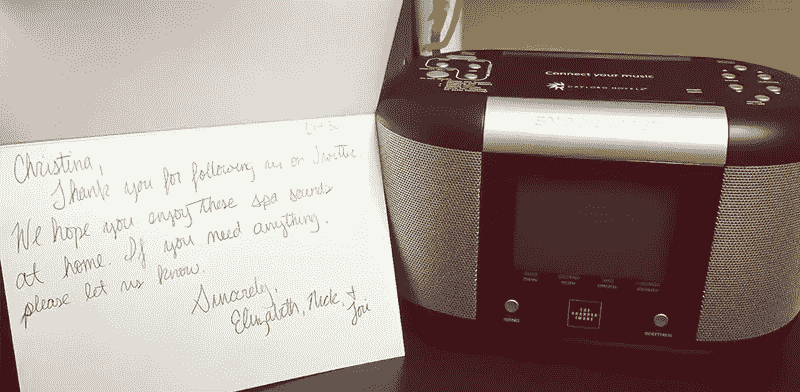 Christina,
Thank you for following us on Twitter.
We hope you enjoy these spa sounds
at home. If you need anything,
please let us know.
Sincerely,
Elizabeth, Nick, &
Connect your music
GAYLORD HOTELS
THE
SHARPER
IMAGE
SOOTHER